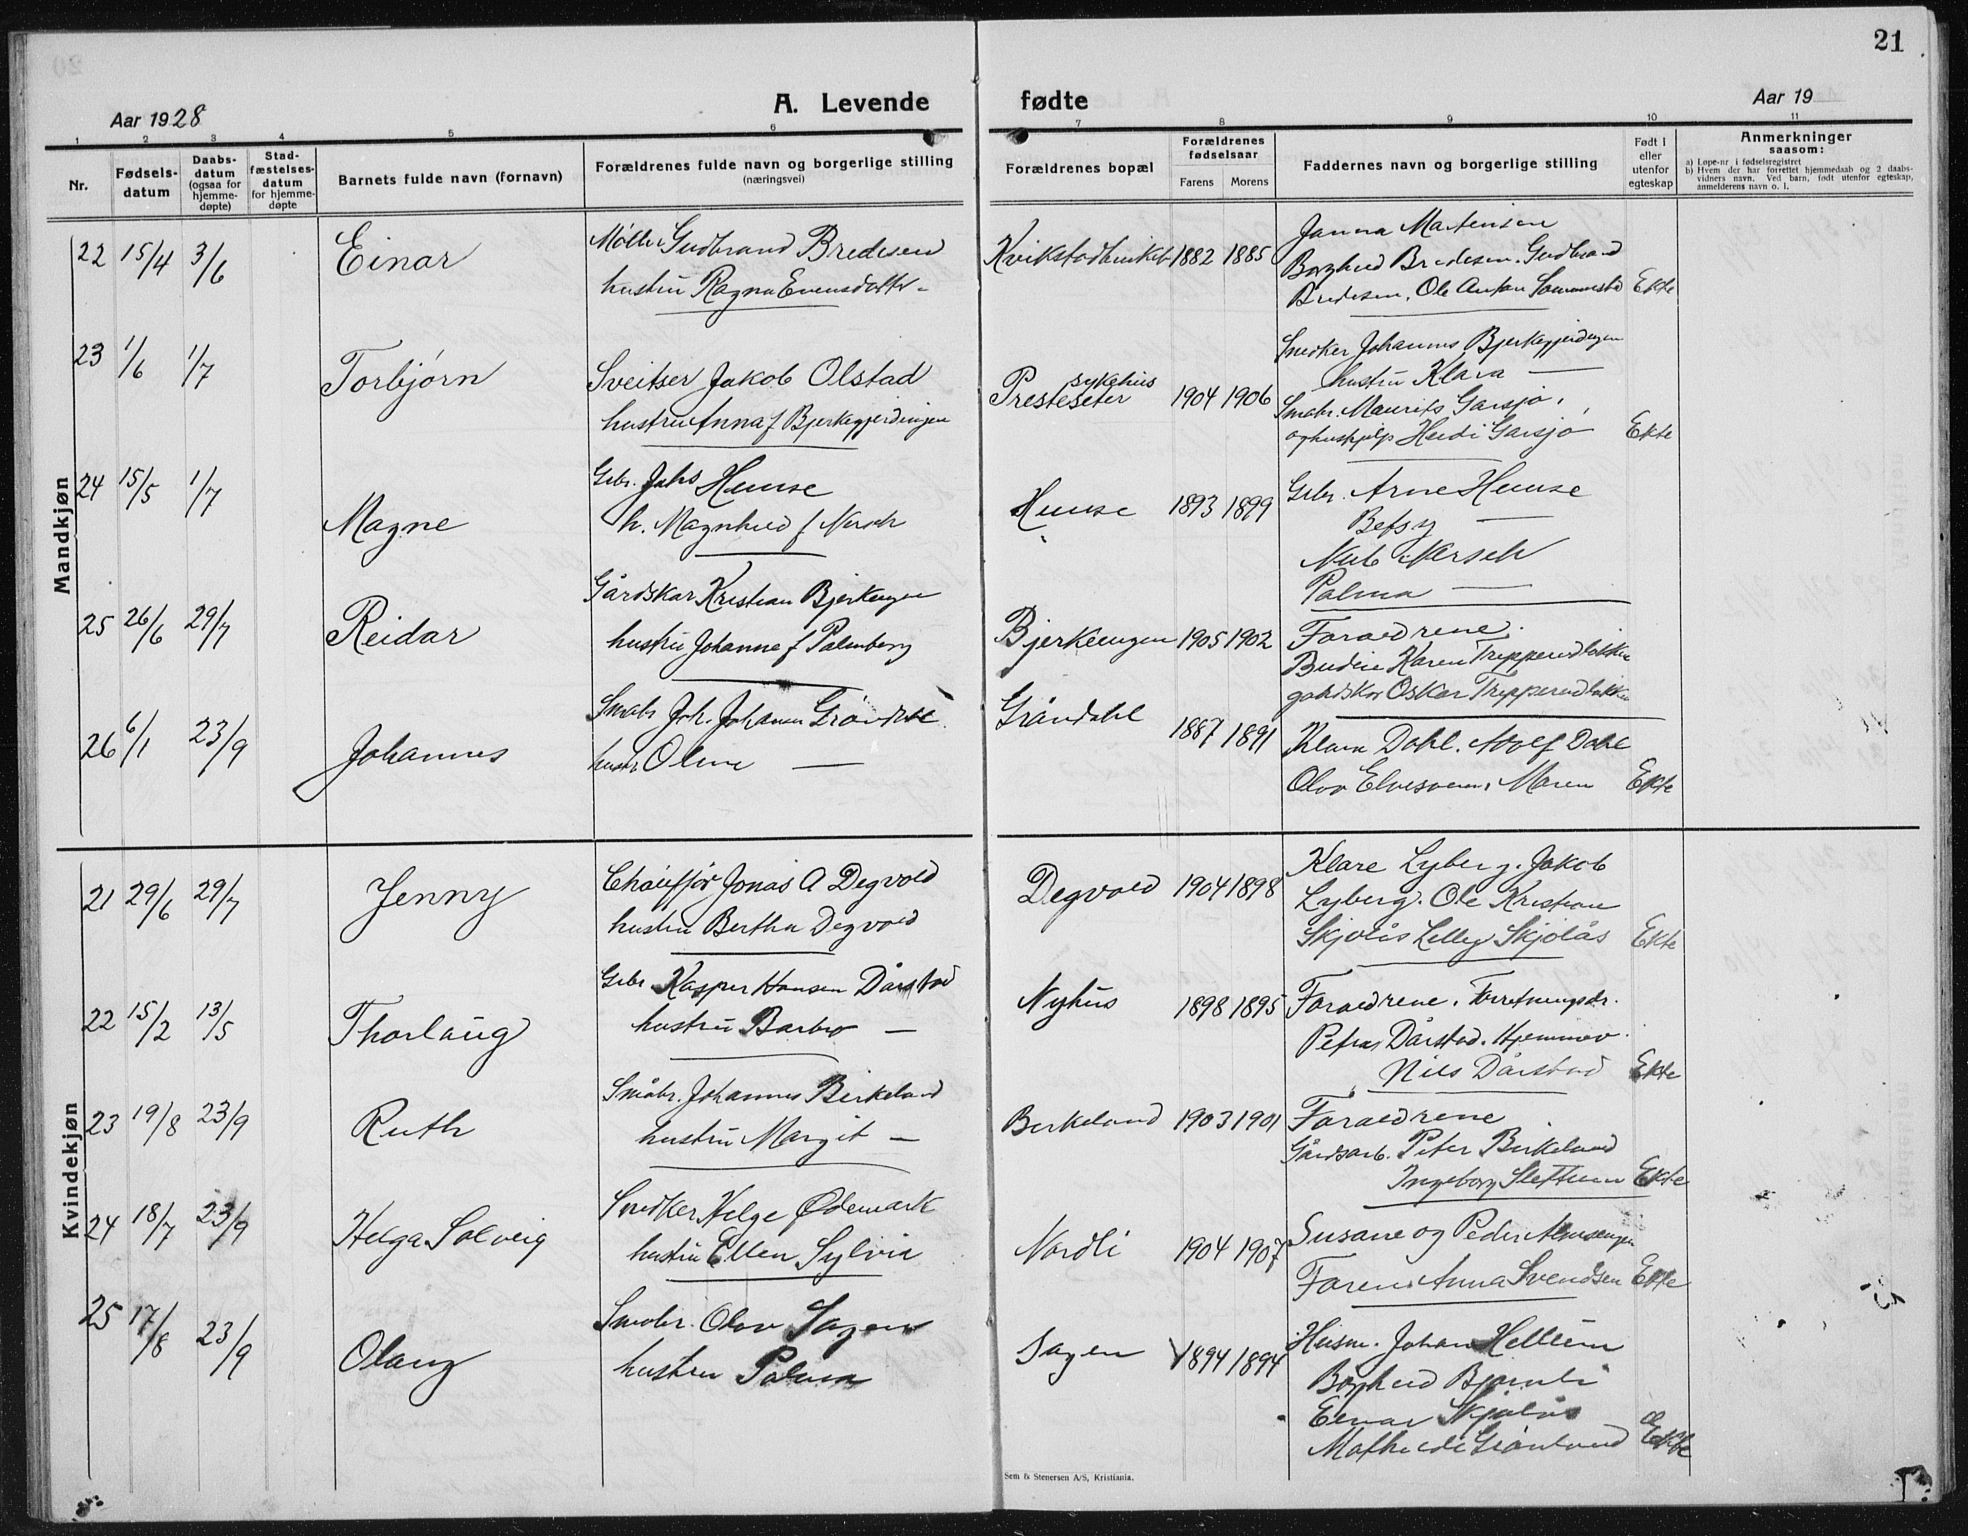 21
Aar 1928
A. Levende fødte
Aar 19
1 2 3 4 5 6 7 8 9 10 11
Nr.
Fødsels-
datum
Daabs-
datum
(ogsaa for
hjemme-
døpte)
Stad-
fæstelses-
datum
for hjemme-
døpte
Barnets fulde navn (fornavn)
Forældrenes fulde navn og borgerlige stilling
(næringsvei)
Forældrenes bopæl
Forældrenes
fødselsaar
Farens Morens
Faddernes navn og borgerlige stilling
Født i
eller
utenfor
egteskap
Anmerkninger
saasom:
a) Løpe-nr. i fødselsregistret
b) Hvem der har forrettet hjemmedaab og 2 daabs-
vidners navn. Ved barn, født utenfor egteskap,
anmelderens navn o. l.
Mandkjøn
22 15/4 3/6 Einar
Møller Gudbrand Bredesen
hustru Ragna Evensdatter
1882 1885
Janna Martensen
Borghild Bredesen. Gudbrand
Bredesen, Ole Anton Ekte
23 1/6 1/7 Torbjørn
Sveitser Jakob Olstad
hustru Anna f Bjerkegjerdingen
sykehus
Presteseter 1904 1906
Snedker Johannes Bjerkegjerdingen
hustru Klara —
Smabr. Maurits Garsjø,
og hushjelp Garsjø Ekte
24 15/5 1/7 Magne
Gbr. Johs
h. Magnhild f
1893 1899
Gbr. Arne
Betsy —
Palma —
25 26/6 29/7 Reidar
Gårdskar Kristian Bjerkengen
hustru Johanne f Palmberg
Bjerkeengen 1905 1902
Foraedrene.
Budeie Karen
gårdskar Oskar
26 6/1 23/9 Johannes
Smabr Joh. Johansen Grøndahl
hustr. Oline —
Grøndahl 1887 1891
Klara Dahl. Adolf Dahl
Olav Maren Ekte
Kvindekjøn
21 29/6 29/7 Jenny
Chauffør Jonas A Degvold
hustru Bertha Degvold
Degvold 1904 1898
Klare Lyberg. Jakob
Lyberg. Ole Kristian
Skjolås Skjolås Ekte
22 15/2 13/5 Thorlaug
Gbr. Kasper Hansen Dårstad
hustru Barbro —
Nyhus 1898 1895
Foraedrene, Forretningsdr.
Dårstad. Hjemmev.
Nils Dårstad Ekte
23 19/8 23/9 Ruth
Småbr. Johannes Birkeland
hustru Margit —
Berkeland 1903 1901
Foraedrene
Gårdsarb. Peter Birkeland
Ingeborg Slettum Ekte
24 18/7 23/9 Helga Solveig
Snedker Helge Ødemark
hustru Ellen Sylvia
Nordli 1904 1907
Susane og Peder
Faren Anna Svendsen Ekte
25 17/8 23/9 Olaug
Smabr. Olav Sagen
hustru Palma
Sagen 1894 1894
Husm. Johan Hellum
Borghild Bjørnli
Einar Skjolås
Mathilde Grønlund Ekte
Sem & Stenersen A/S, Kristiania.